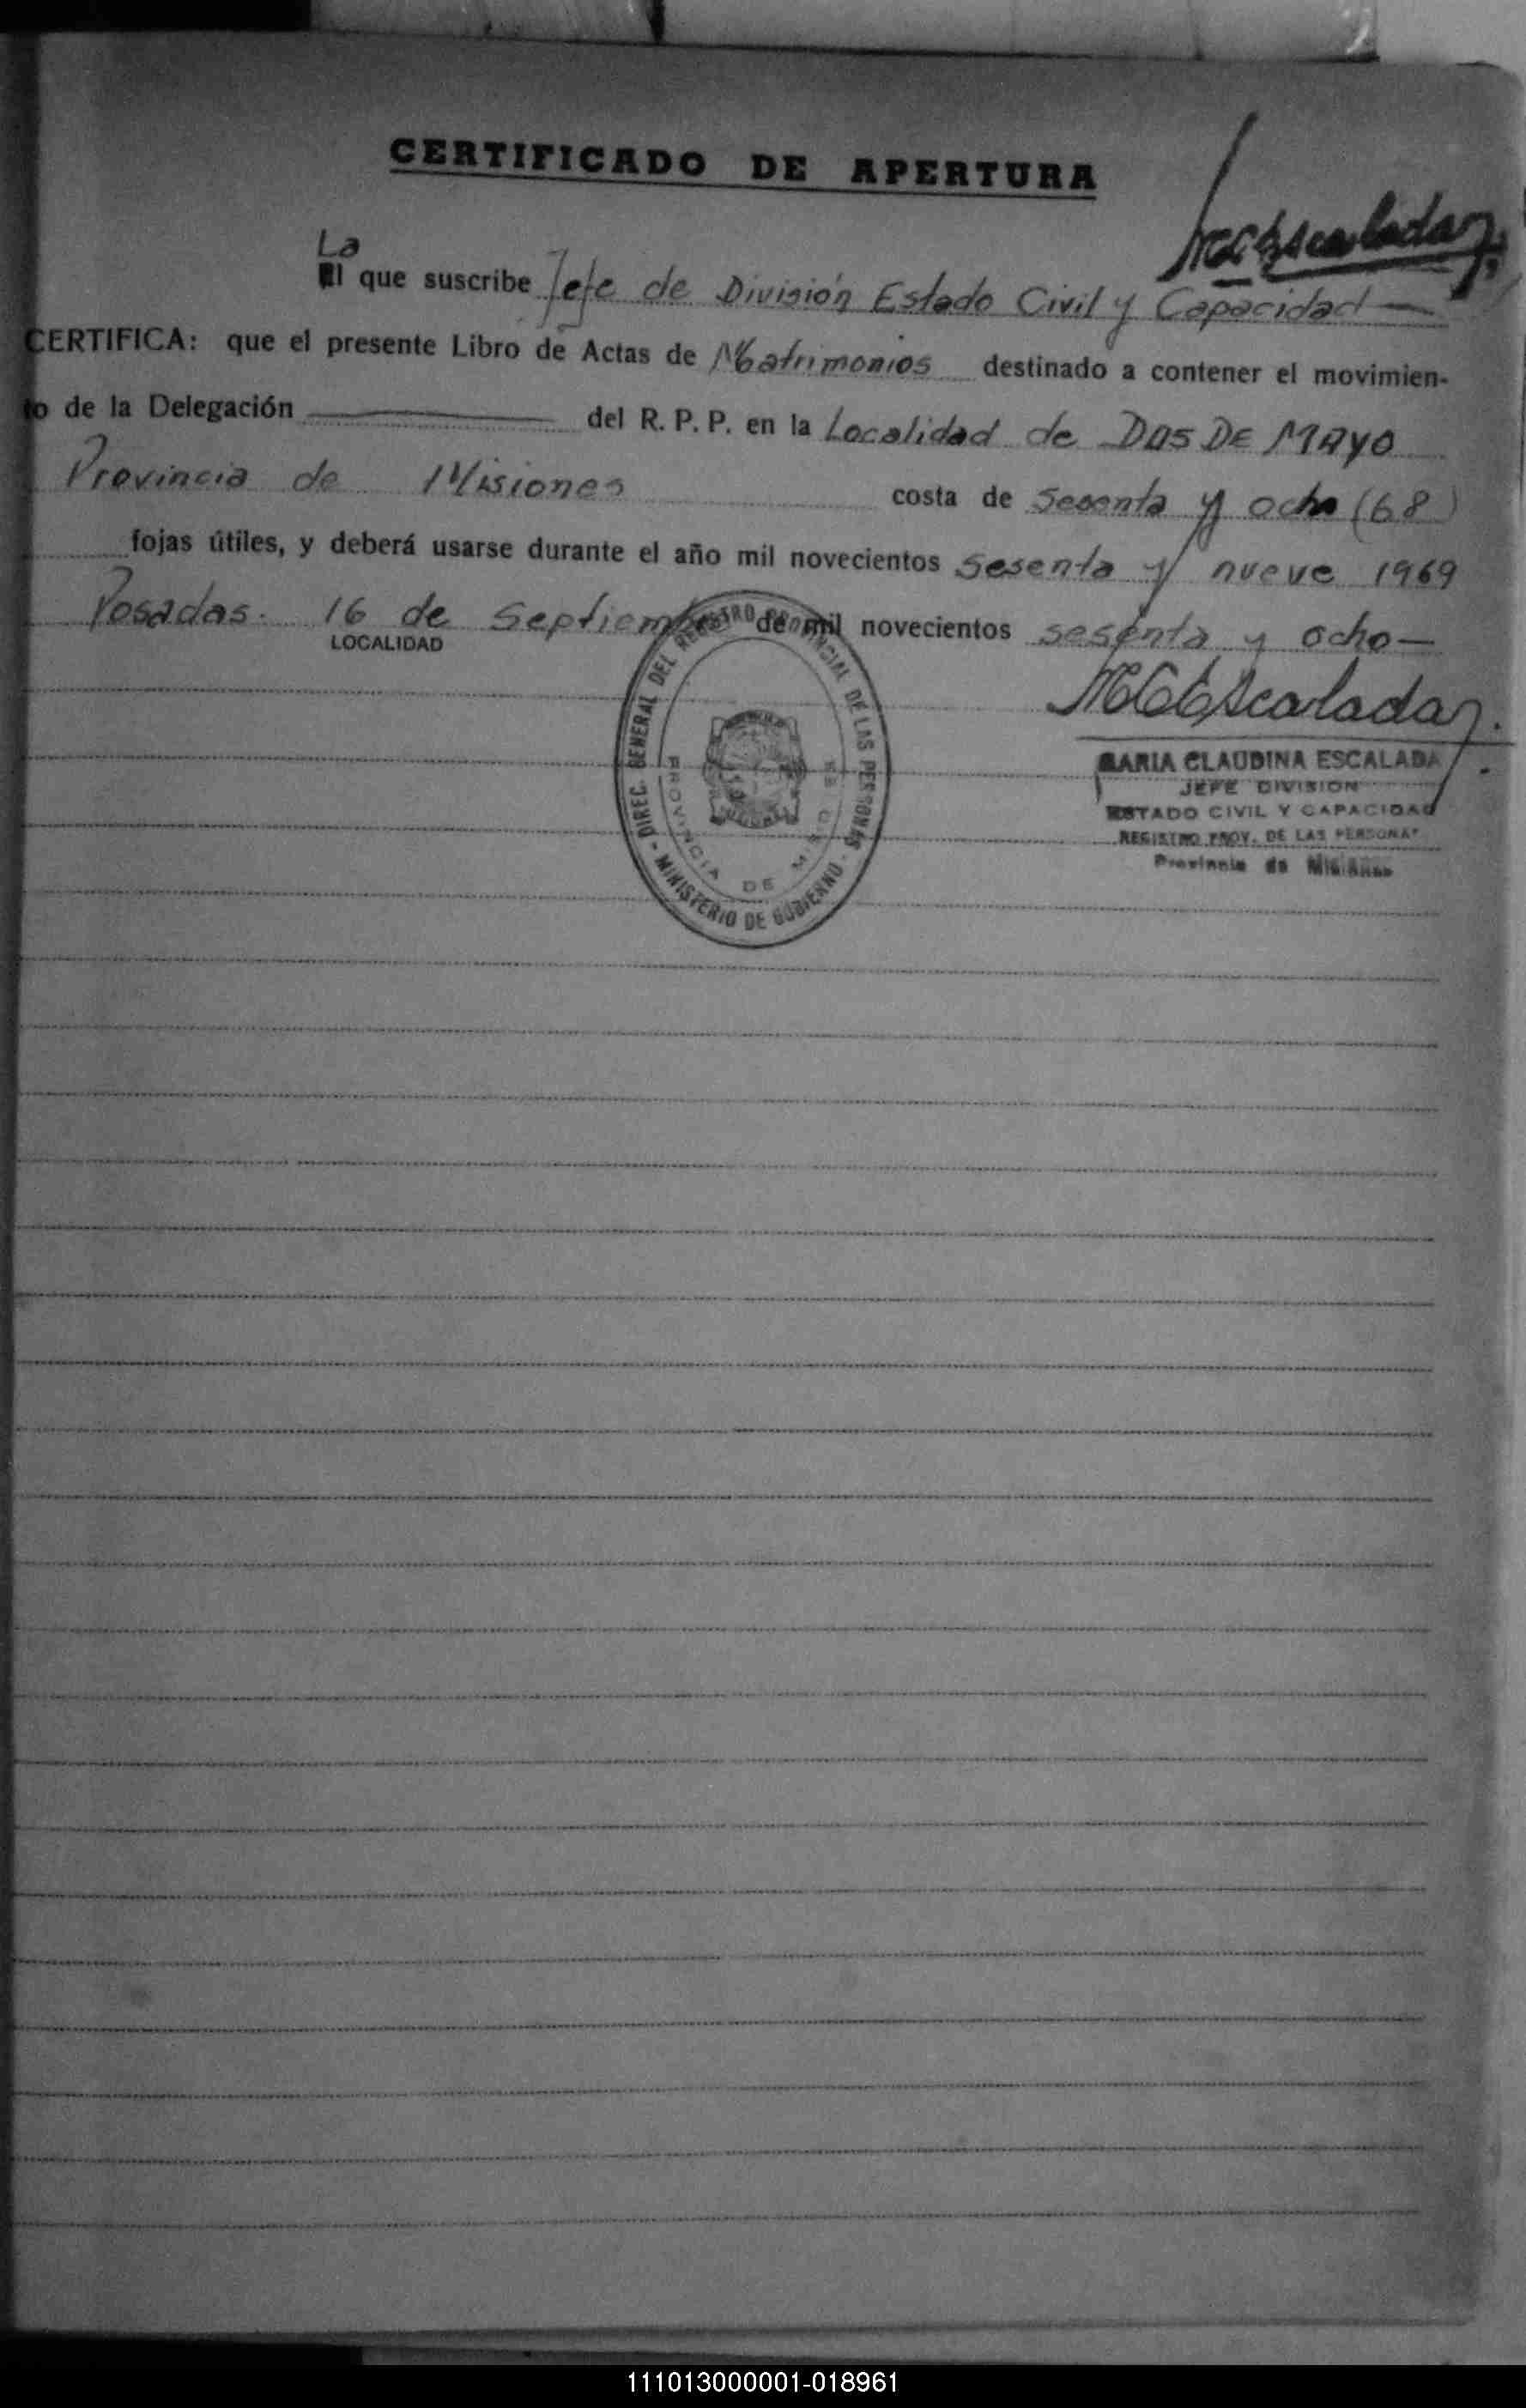 CERTIFICADO DE APERTURA
MCEscalada
La
El que suscribe Jefe de División Estado Civil y Capacidad
CERTIFICA: que el presente Libro de Actas de Matrimonios destinado a contener el movimien-
to de la Delegación del R. P. P. en la Localidad de DOS DE MAYO
Provincia de Misiones costa de sesenta y ocho (68)
fojas útiles, y deberá usarse durante el año mil novecientos sesenta y nueve 1969
Posadas. 16 de Septiembre de mil novecientos sesenta y ocho
LOCALIDAD
MCEscalada
MARIA CLAUDINA ESCALADA
JEFE DIVISION
ESTADO CIVIL Y CAPACIDAD
REGISTRO PROV. DE LAS PERSONAS
Provincia de Misiones
DIREC. GENERAL DEL REGISTRO PROVINCIAL DE LAS PERSONAS
- MINISTERIO DE GOBIERNO -
PROVINCIA DE MISIONES
111013000001-018961